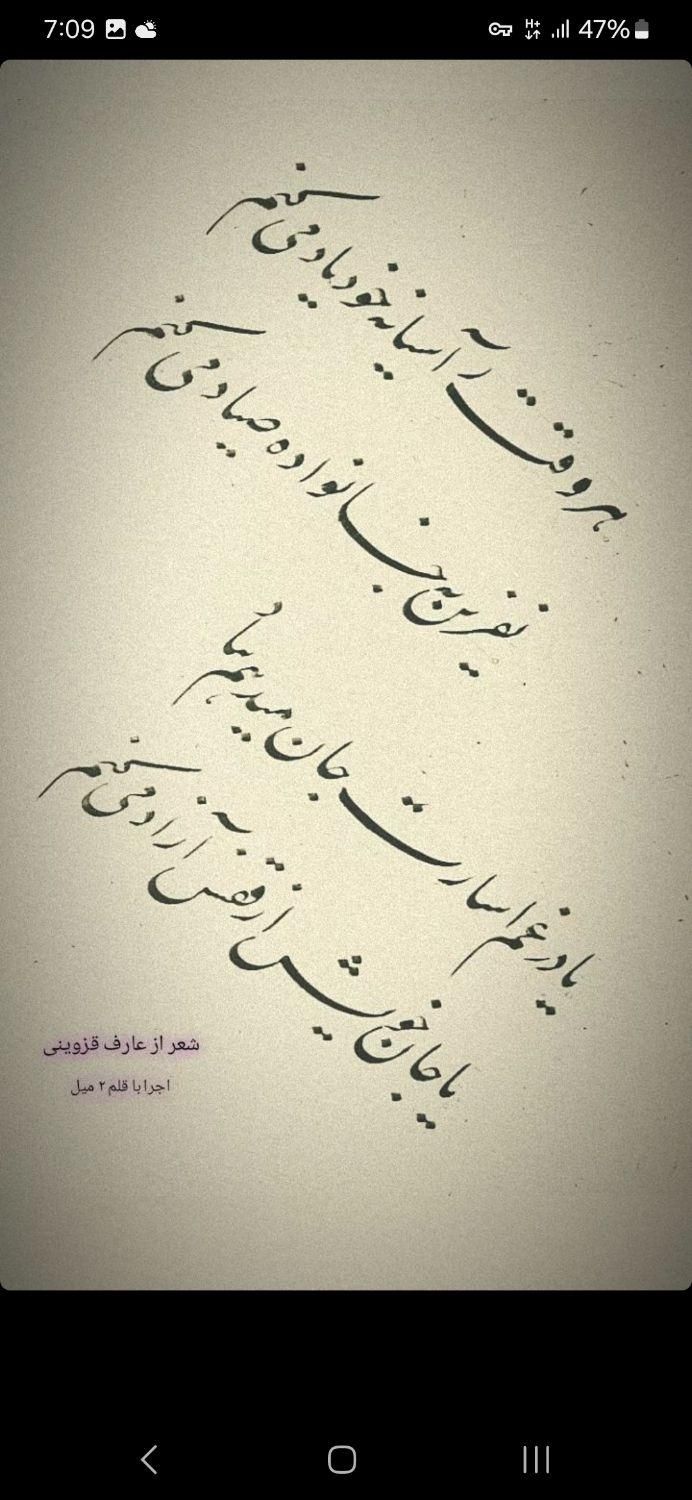 7:09 47%
هر وقت ز آشیانه خود یاد می کنم
نفرین به خانواده صیاد می کنم
یا در غم اسارت جان میدهم بباد
یا جان خویش از قفس آزاد می کنم
شعر از عارف قزوینی
اجرا با قلم ۲ میل